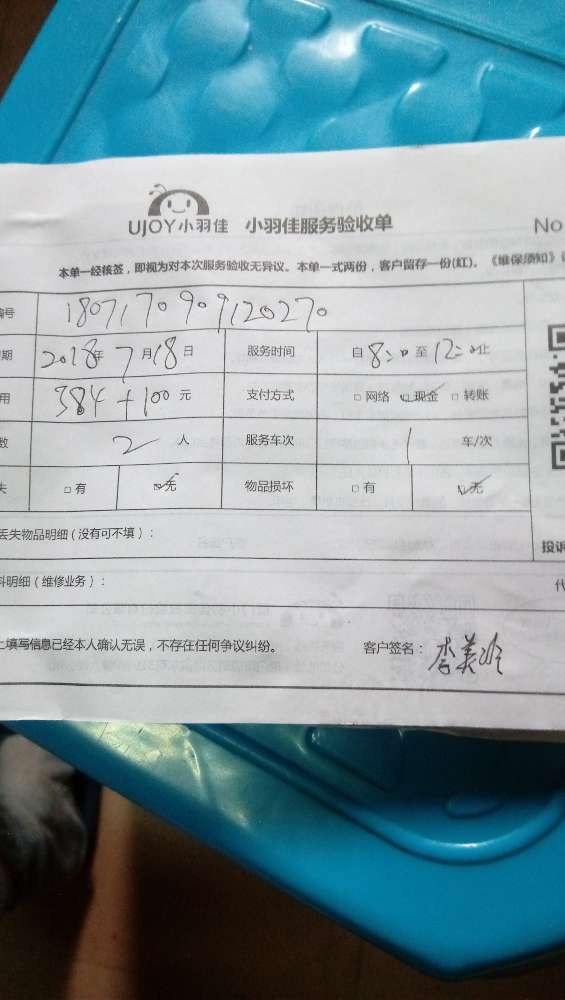 UJOY小羽佳 小羽佳服务验收单 No
本单一经核签，即视为对本次服务验收无异议。本单一式两份，客户留存一份(红)。《维保须知》
编号 1807170909120270
期 2018年7月18日 服务时间 自8:00至12:00止
用 384+100元 支付方式 □网络 ☑现金 □转账
数 2人 服务车次 1 车/次
失 □有 ☑无 物品损坏 □有 ☑无
丢失物品明细（没有可不填）： 投诉
料明细（维修业务）：
上填写信息已经本人确认无误，不存在任何争议纠纷。 客户签名：李美玲